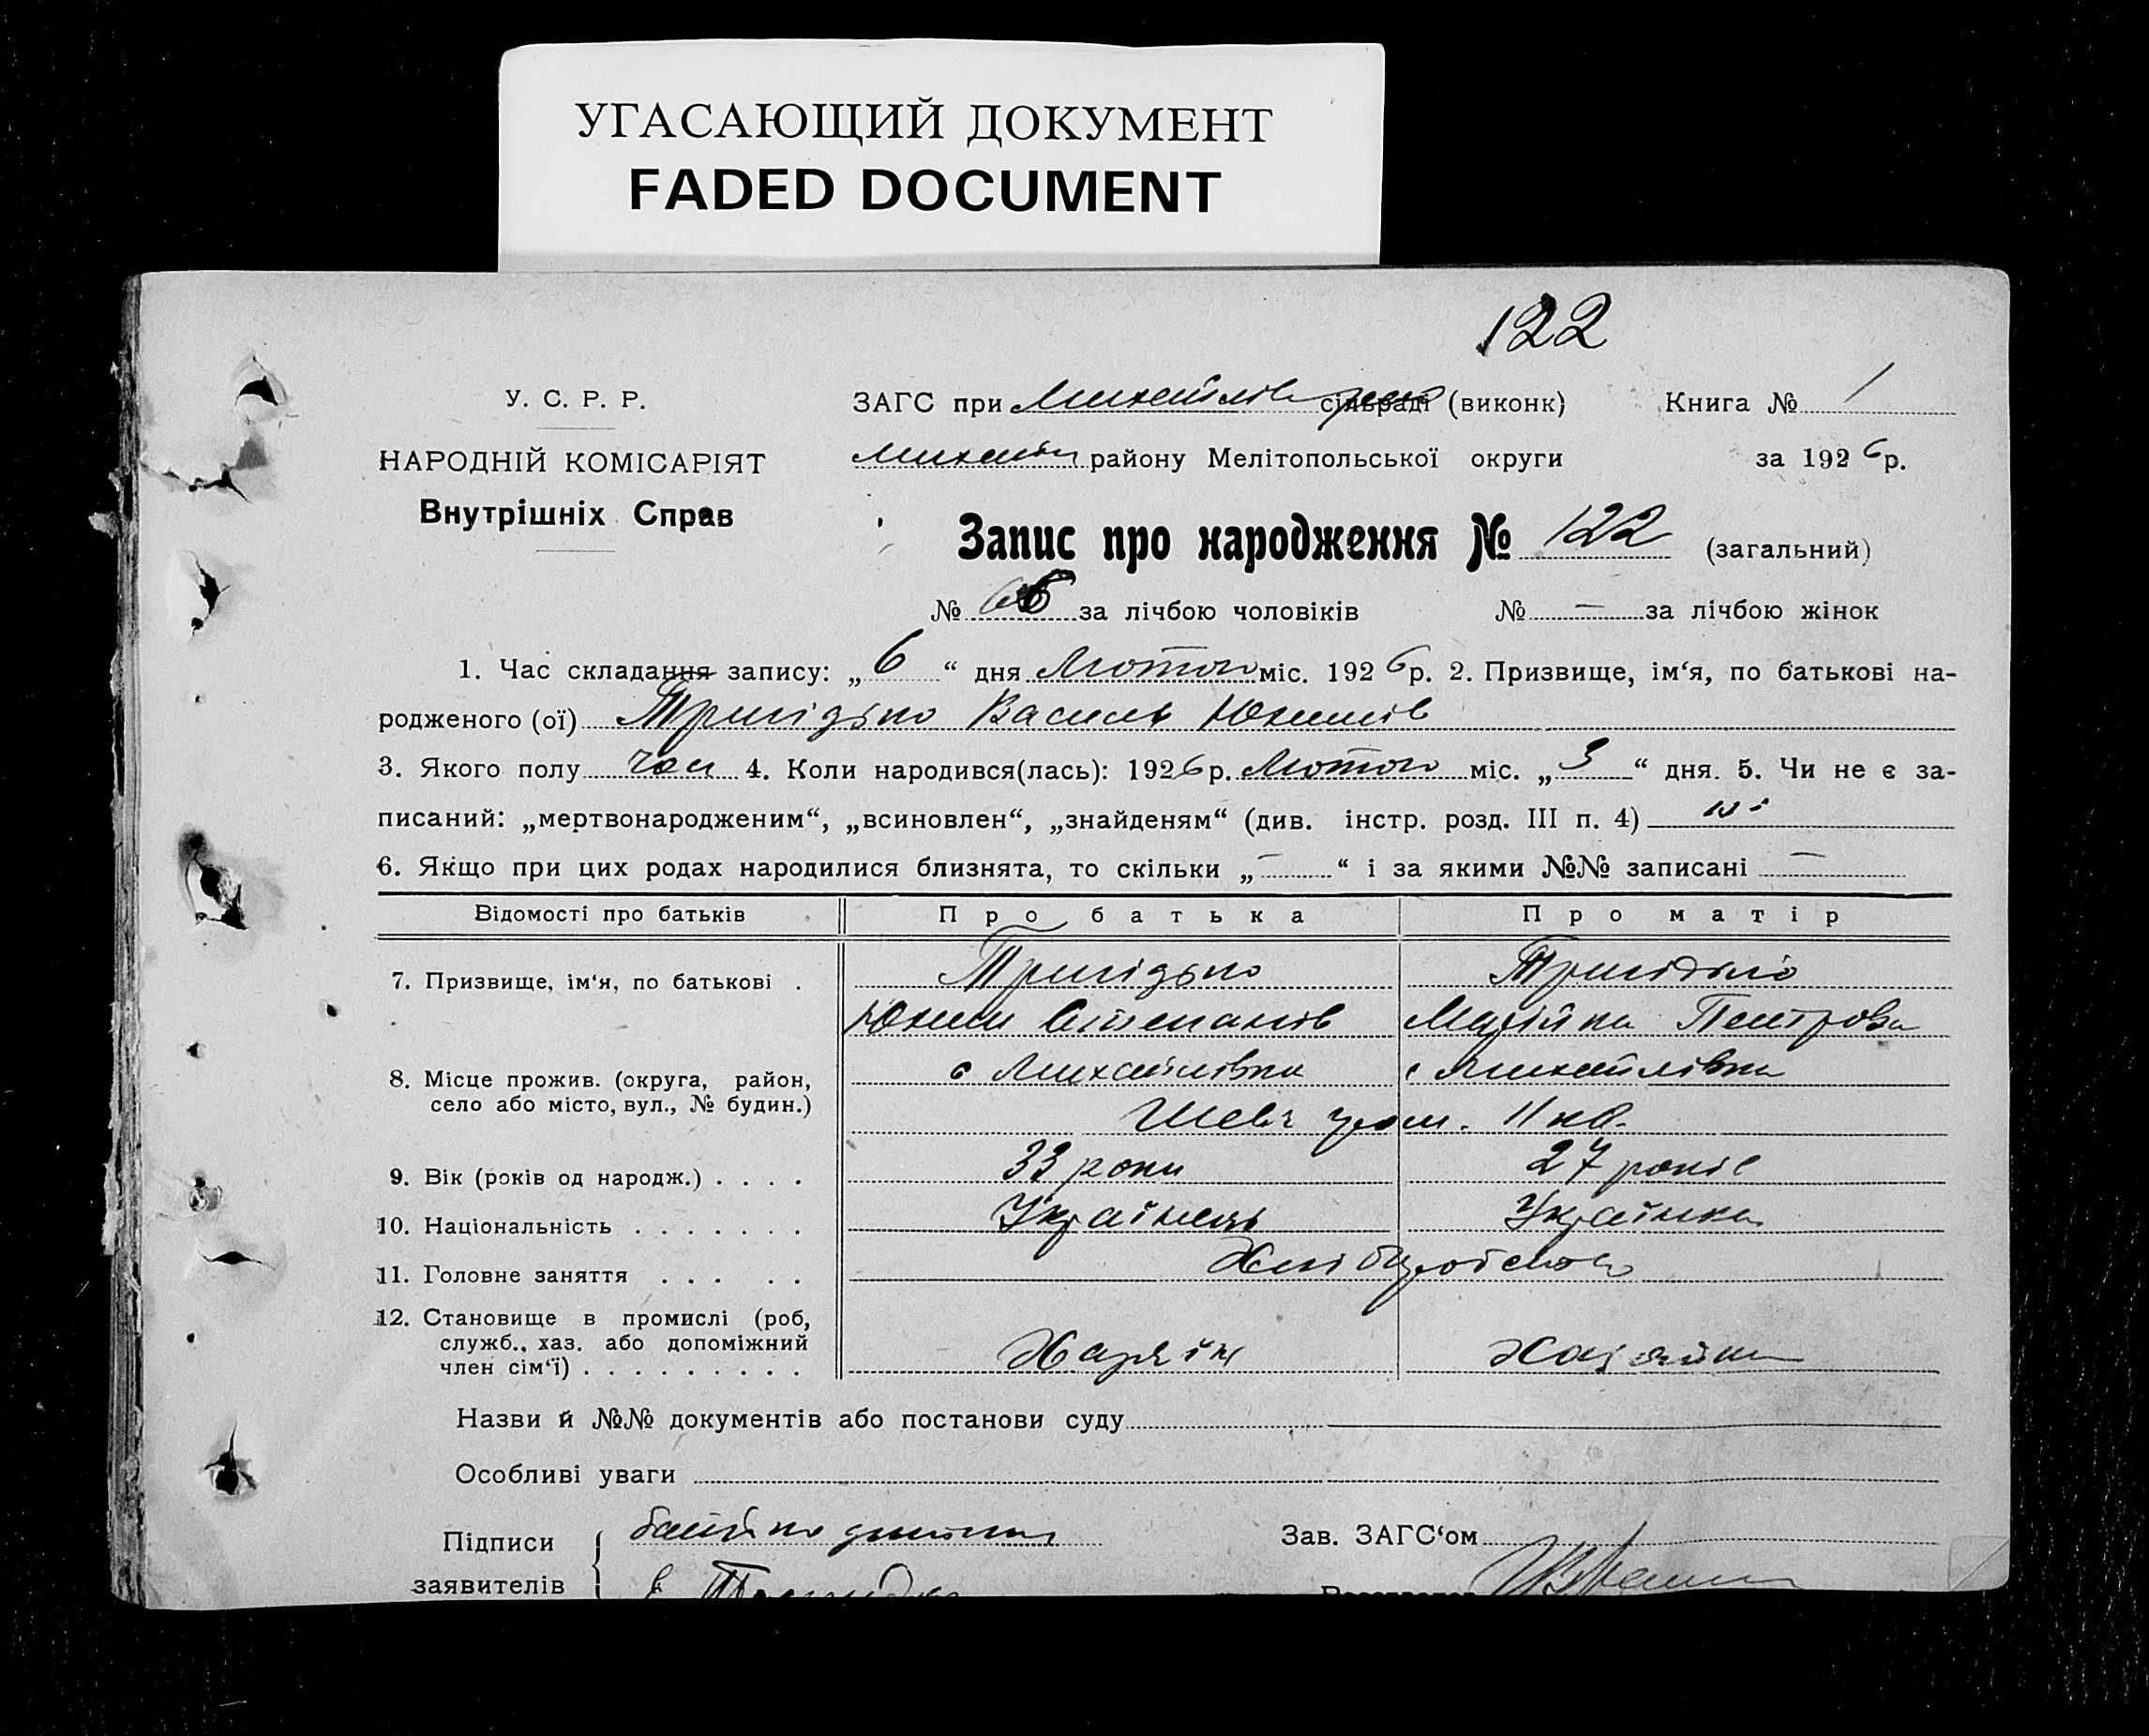 УГАСАЮЩИЙ ДОКУМЕНТ
FADED DOCUMENT
122
У. С. Р. Р.
НАРОДНІЙ КОМІСАРІЯТ
Внутрішніх Справ
ЗАГС при Михайлів сільраді (виконк) Книга № 1
району Мелітопольської округи за 1926 р.
Запис про народження № 122 (загальний)
№ за лічбою чоловіків № — за лічбою жінок
1. Час складання запису: „ 6 “ дня Лютого міс. 1926 р. 2. Призвище, ім‘я, по батькові на-
родженого (ої) Василь Юхимів
3. Якого полу чол 4. Коли народився(лась): 1926 р. Лютого міс. „ 3 “ дня. 5. Чи не є за-
писаний: „мертвонародженим“, „всиновлен“, „знайденям“ (див. інстр. розд. III п. 4) ні
6. Якщо при цих родах народилися близнята, то скільки „ — “ і за якими №№ записані —
Відомості про батьків Про батька Про матір
7. Призвище, ім‘я, по батькові .
Юхим Степанів Марійка Петрова
8. Місце прожив. (округа, район, с Михайлівка с Михайлівка
село або місто, вул., № будин.) Шевч гром. 11 кв.
9. Вік (років од народж.) . . . . 33 роки 27 років
10. Національність . . . . . . . Українець Українка
11. Головне заняття . . . . . Хліборобство
12. Становище в промислі (роб,
служб., хаз. або допоміжний
член сім‘ї) . . . . . . . . . Хазяїн Хазяйка
Назви й №№ документів або постанови суду
Особливі уваги
Підписи батько дитини Зав. ЗАГС‘ом
заявителів